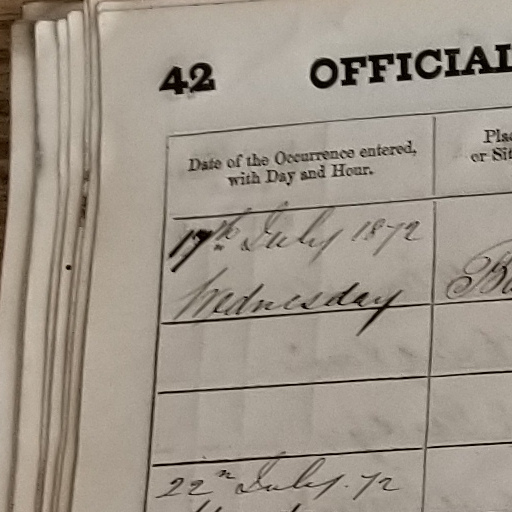 42 OFFICIAL
Date of the Occurrence entered,
with Day and Hour.
Pla
or Sit
17th July 1872
Wednesday
B
22n July. 72